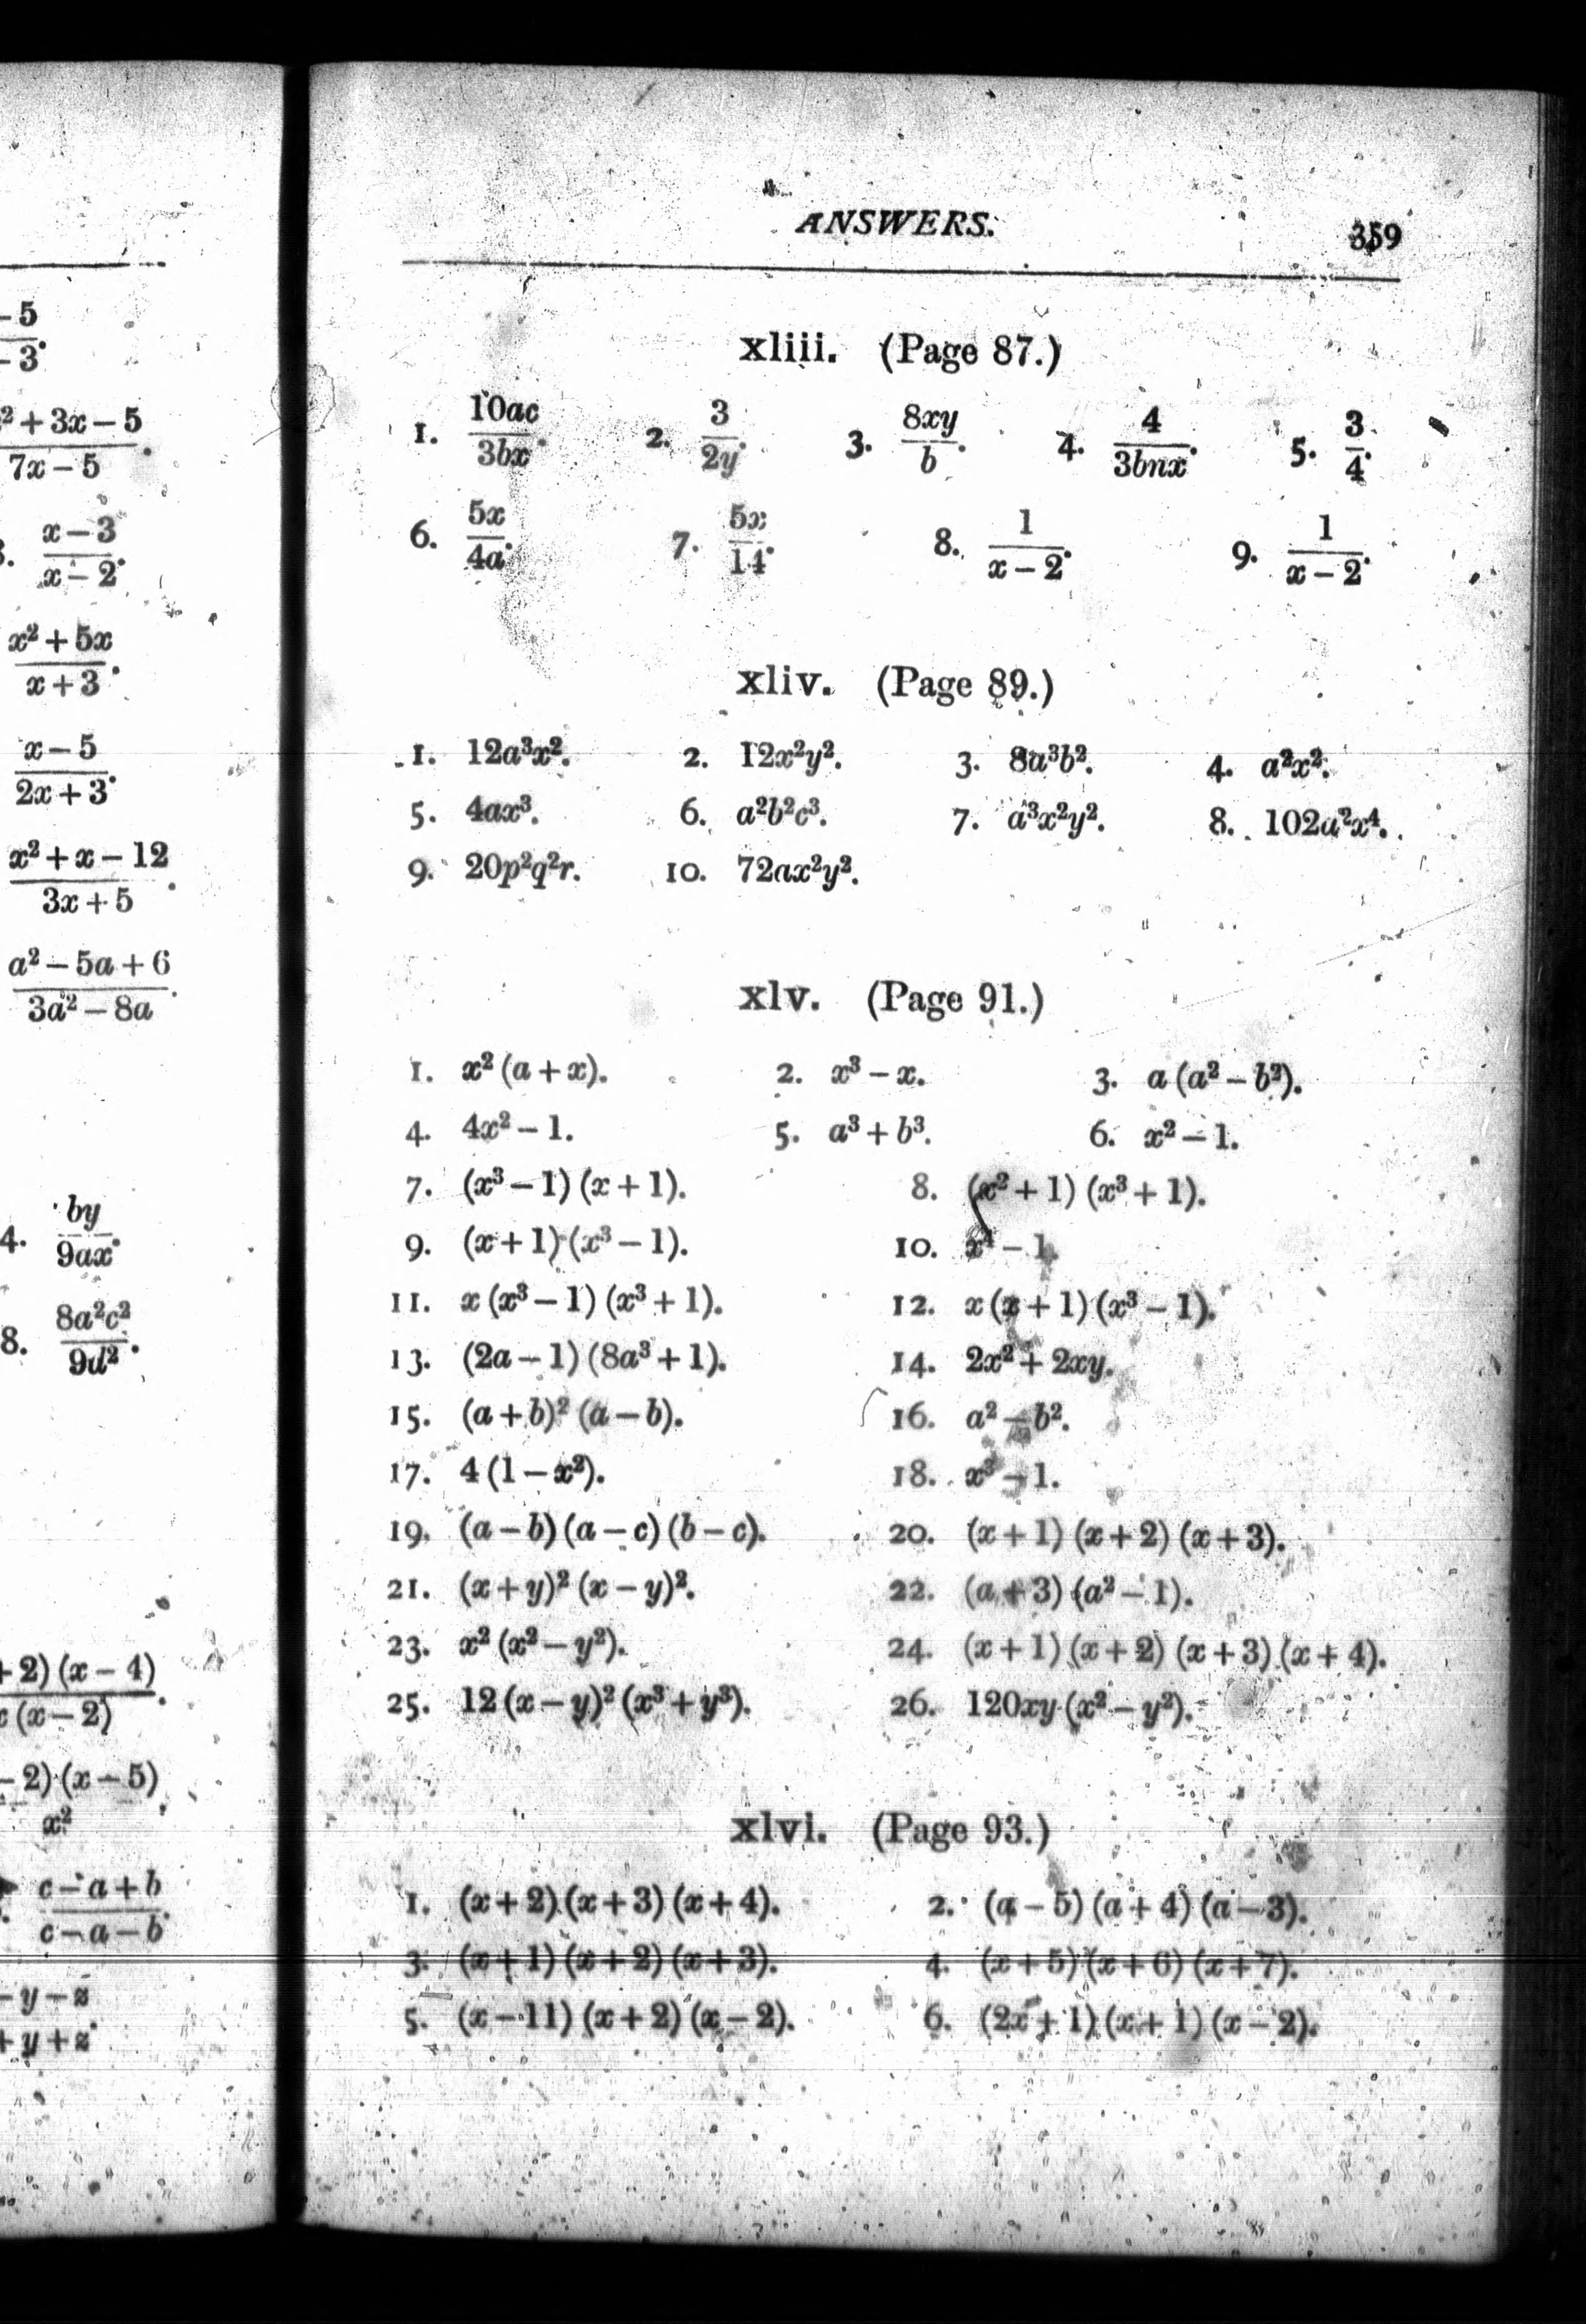 -5
-3.
2 + 3x - 5
7x - 5 .
x - 3
x - 2.
x² + 5x
x + 3 .
x - 5
2x + 3.
x² + x - 12
3x + 5 .
a² - 5a + 6
3a² - 8a .
4. by
9ax.
8. 8a²c²
9d² .
+ 2) (x - 4)
(x - 2) .
- 2) (x - 5)
x² .
c - a + b
c - a - b.
- y - z
+ y + z.
ANSWERS. 359
xliii. (Page 87.)
1. 10ac/3bx. 2. 3/2y. 3. 8xy/b. 4. 4/3bnx. 5. 3/4.
6. 5x/4a. 7. 5x/14. 8. 1/(x - 2). 9. 1/(x - 2).
xliv. (Page 89.)
1. 12a³x². 2. 12x²y². 3. 8a³b². 4. a²x².
5. 4ax³. 6. a²b²c³. 7. a³x²y². 8. 102a²x⁴.
9. 20p²q²r. 10. 72ax²y².
xlv. (Page 91.)
1. x² (a + x). 2. x³ - x. 3. a (a² - b²).
4. 4x² - 1. 5. a³ + b³. 6. x² - 1.
7. (x³ - 1) (x + 1). 8. (x² + 1) (x³ + 1).
9. (x + 1) (x³ - 1). 10. x⁴ - 1.
11. x (x³ - 1) (x³ + 1). 12. x (x + 1) (x³ - 1).
13. (2a - 1) (8a³ + 1). 14. 2x² + 2xy.
15. (a + b)² (a - b). 16. a² - b².
17. 4 (1 - x²). 18. x³ - 1.
19. (a - b) (a - c) (b - c). 20. (x + 1) (x + 2) (x + 3).
21. (x + y)² (x - y)². 22. (a + 3) (a² - 1).
23. x² (x² - y²). 24. (x + 1) (x + 2) (x + 3) (x + 4).
25. 12 (x - y)² (x³ + y³). 26. 120xy (x² - y²).
xlvi. (Page 93.)
1. (x + 2) (x + 3) (x + 4). 2. (a - 5) (a + 4) (a - 3).
3. (x + 1) (x + 2) (x + 3). 4. (x + 5) (x + 6) (x + 7).
5. (x - 11) (x + 2) (x - 2). 6. (2x + 1) (x + 1) (x - 2).